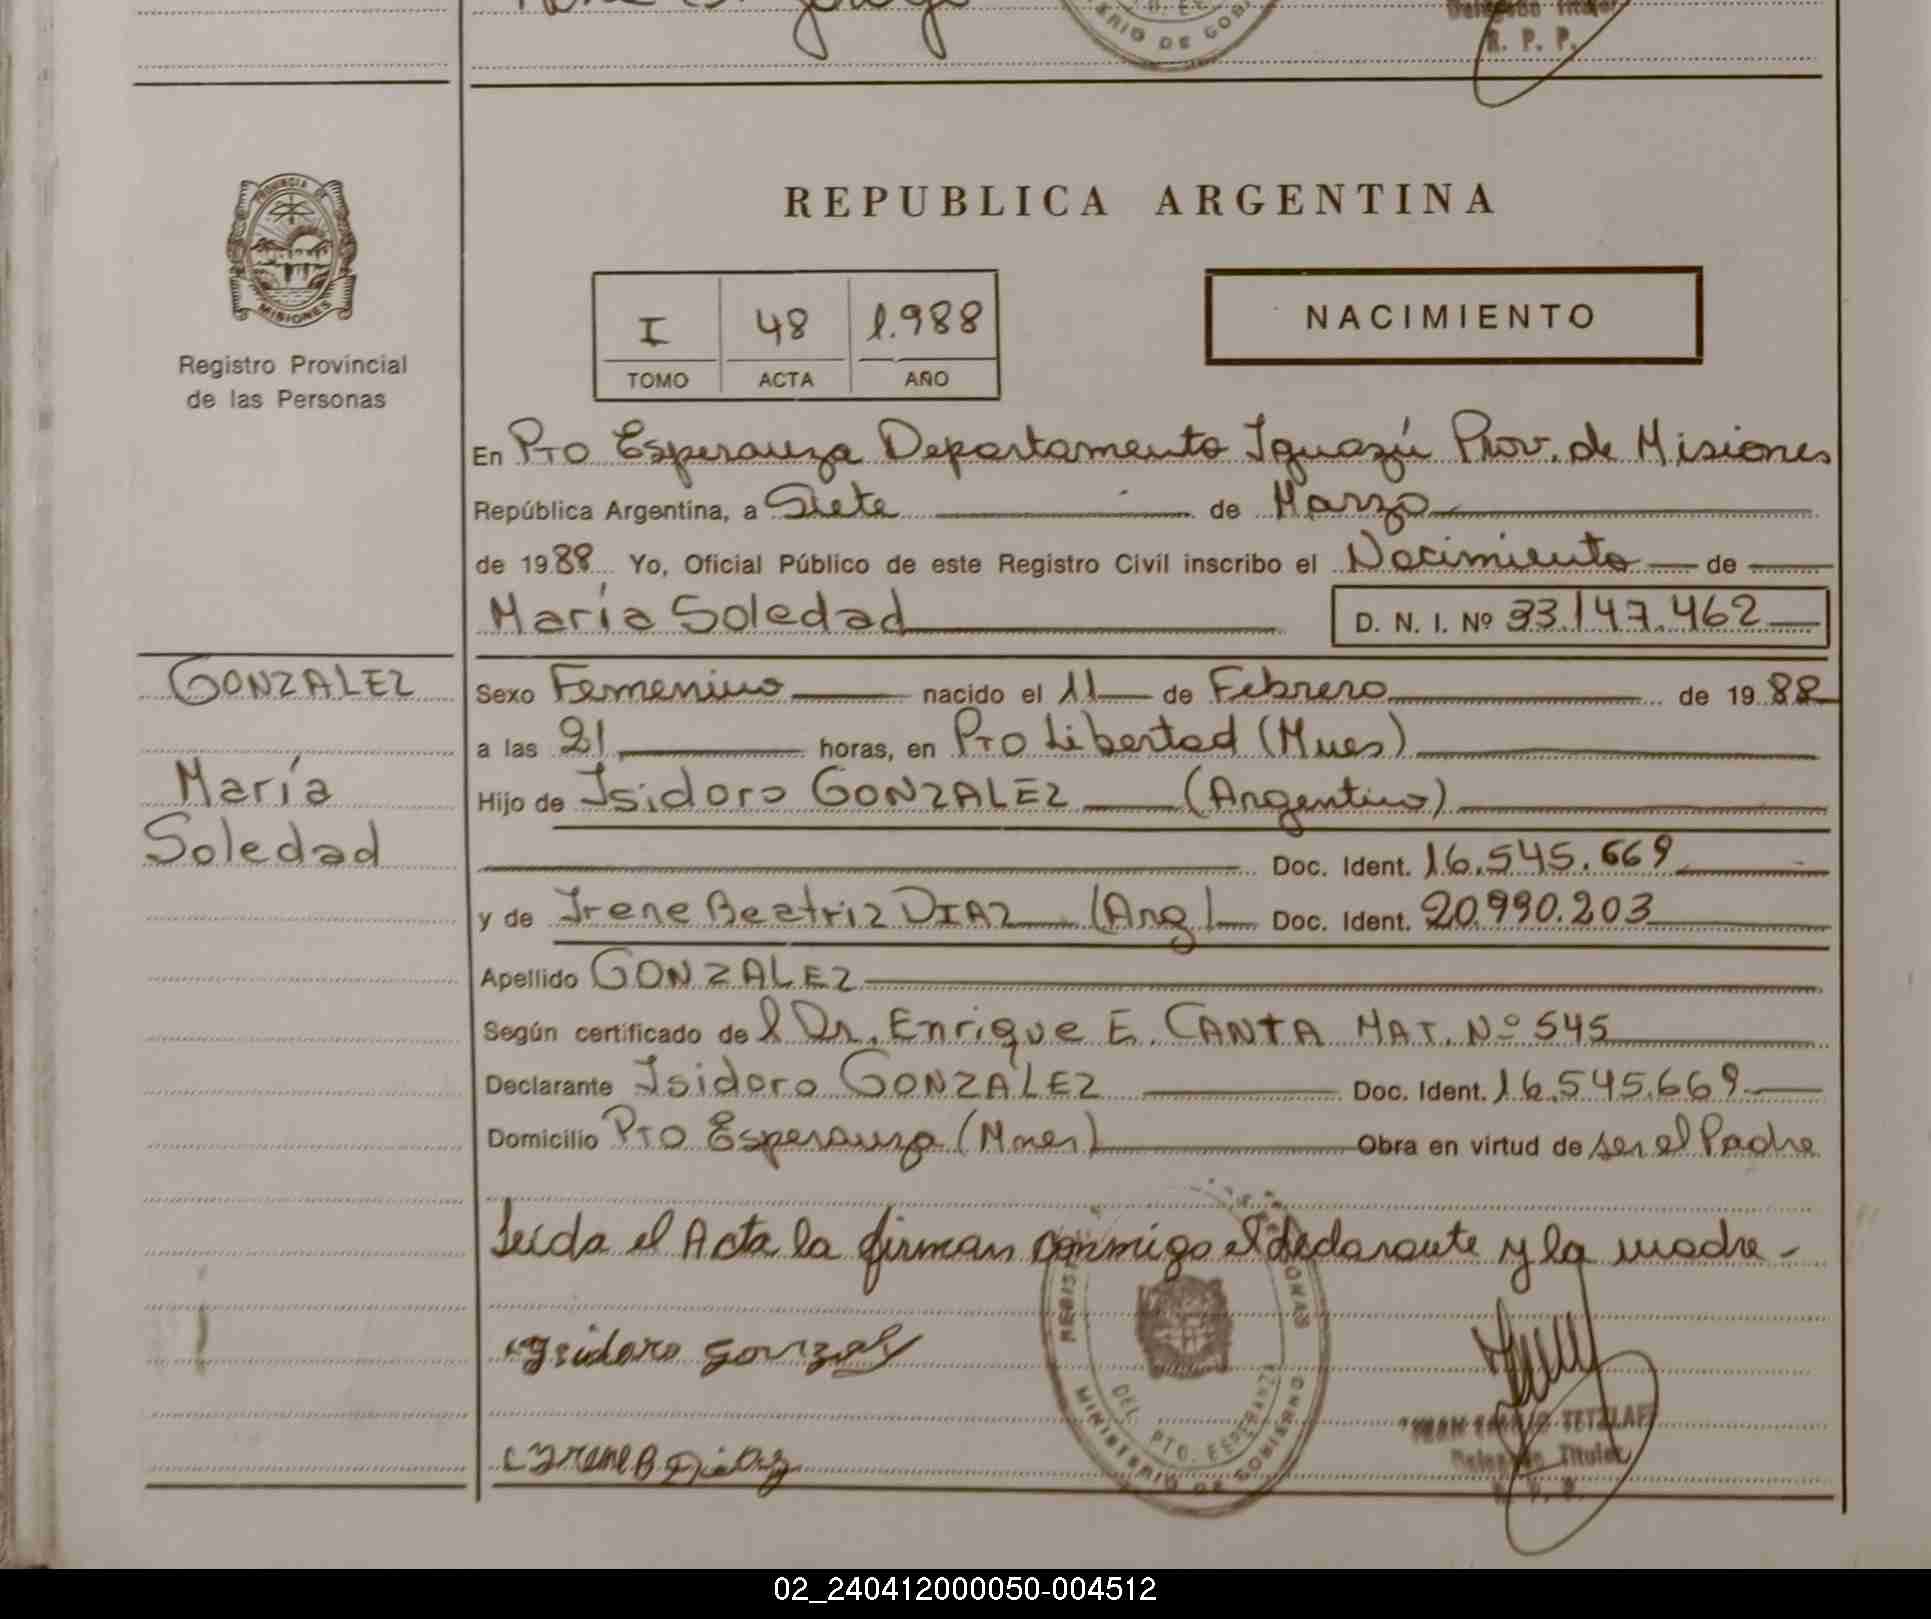 R. P. P.
PROVINCIA DE
MISIONES
Registro Provincial
de las Personas
REPUBLICA ARGENTINA
I 48 1.988
TOMO ACTA AÑO
NACIMIENTO
En Pto Esperanza Departamento Iguazú Prov. de Misiones
República Argentina, a Siete de Marzo
de 1988 Yo, Oficial Público de este Registro Civil inscribo el Nacimiento de
María Soledad D. N. I. Nº 33.147.462
GONZALEZ
María
Soledad
Sexo Femenino nacido el 11 de Febrero de 1988
a las 21 horas, en Pto Libertad (Mnes)
Hijo de Isidoro GONZALEZ (Argentino)
Doc. Ident. 16.545.669
y de Irene Beatriz DIAZ (Arg) Doc. Ident. 20.990.203
Apellido GONZALEZ
Según certificado del Dr. Enrique E. CANTA MAT. Nº 545
Declarante Isidoro GONZALEZ Doc. Ident. 16.545.669
Domicilio Pto Esperanza (Mnes) Obra en virtud de ser el Padre
Leída el Acta la firman conmigo el declarante y la madre -
Isidoro Gonzalez
Irene B Diaz
DEL. PTO. ESPERANZA
MINISTERIO DE GOBIERNO
TETZLAFF
Delegado Titular
R. P. P.
02_240412000050-004512